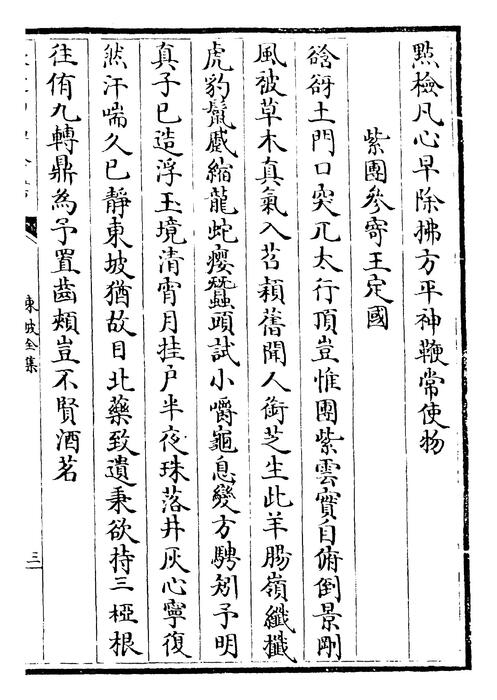 點檢凡心早除拂方平神鞭常使物
紫團參寄王定國
谽谺土門口突兀太行頂豈惟團紫雲實自俯倒景剛
風被草木真氣入苕穎舊聞人銜芝生此羊腸嶺纖攕
虎豹鬛蹙縮龍蛇癭蠶頭試小嚼龜息變方騁矧予明
真子已造浮玉境清宵月挂户半夜珠落井灰心寧復
然汗喘久已靜東坡猶故目北藥致遺秉欲持三椏根
往侑九轉鼎為予置齒頰豈不賢酒茗
東坡全集
三